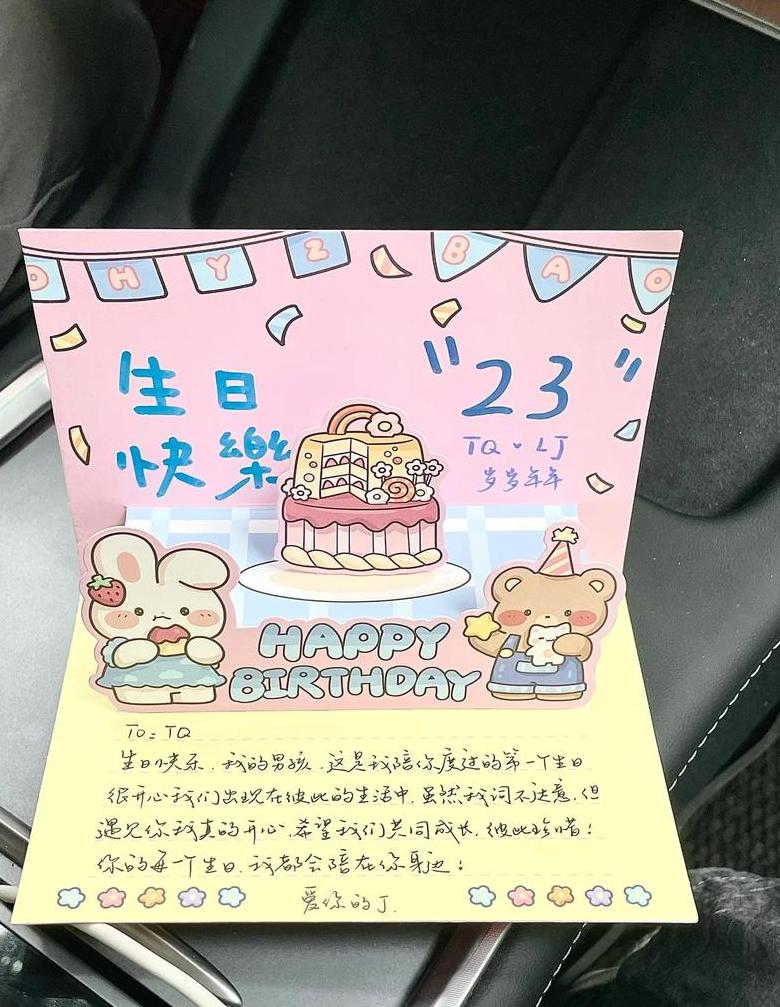 O H Y Z B A O
生日
快樂
"23"
TQ♥LJ
岁岁年年
HAPPY
BIRTHDAY
To: TQ
生日快乐，我的男孩，这是我陪你度过的第一个生日
很开心我们出现在彼此的生活中，虽然我词不达意，但
遇见你我真的开心，希望我们共同成长，彼此珍惜！
你的每一个生日，我都会陪在你身边！
爱你的J.